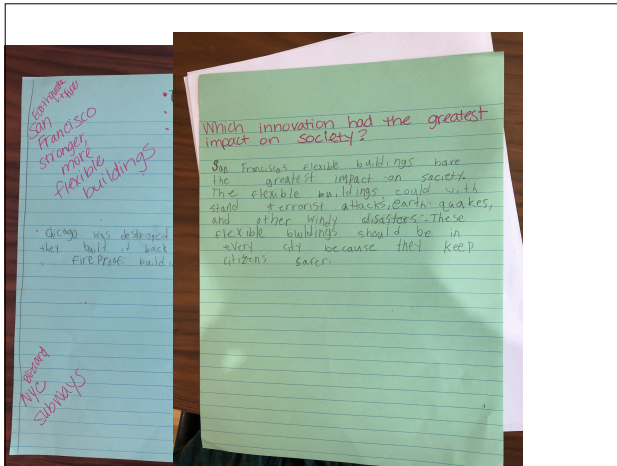 Earthquake
+ Fire
San
Francisco
stronger,
more
flexible
buildings
• Chicago was destroyed
they built it back
FireProof build
Blizzard
NYC
subways
Which innovation had the greatest
impact on society?
San Francisco's flexible buildings have
the greatest impact on society.
The flexible buildings could with
stand terrorist attacks, earth quakes,
and other windy disasters. These
flexible buildings should be in
every city because they keep
citizens safer.